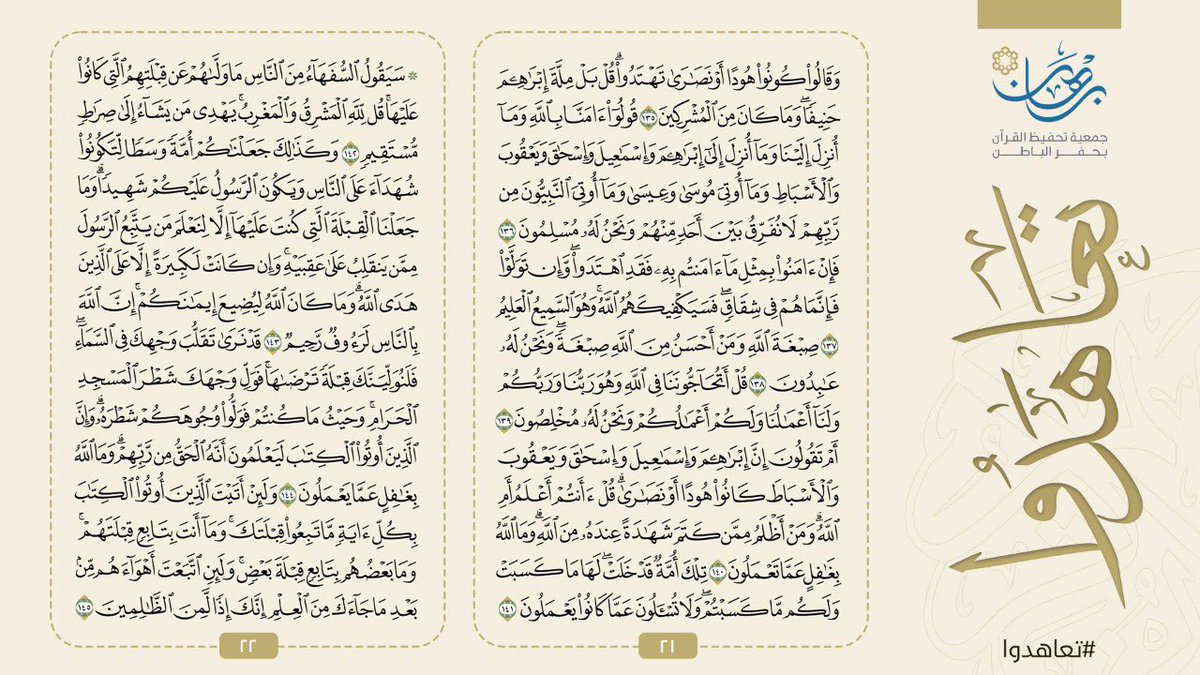 برهان
جمعية تحفيظ القرآن
بحفر الباطن
تعاهدوا
#تعاهدوا
وَقَالُوا۟ كُونُوا۟ هُودًا أَوْ نَصَٰرَىٰ تَهْتَدُوا۟ۗ قُلْ بَلْ مِلَّةَ إِبْرَٰهِۦمَ
حَنِيفًاۖ وَمَا كَانَ مِنَ ٱلْمُشْرِكِينَ ١٣٥ قُولُوٓا۟ ءَامَنَّا بِٱللَّهِ وَمَآ
أُنزِلَ إِلَيْنَا وَمَآ أُنزِلَ إِلَىٰٓ إِبْرَٰهِۦمَ وَإِسْمَٰعِيلَ وَإِسْحَٰقَ وَيَعْقُوبَ
وَٱلْأَسْبَاطِ وَمَآ أُوتِىَ مُوسَىٰ وَعِيسَىٰ وَمَآ أُوتِىَ ٱلنَّبِيُّونَ مِن
رَّبِّهِمْ لَا نُفَرِّقُ بَيْنَ أَحَدٍ مِّنْهُمْ وَنَحْنُ لَهُۥ مُسْلِمُونَ ١٣٦
فَإِنْ ءَامَنُوا۟ بِمِثْلِ مَآ ءَامَنتُم بِهِۦ فَقَدِ ٱهْتَدَوا۟ۖ وَّإِن تَوَلَّوْا۟
فَإِنَّمَا هُمْ فِى شِقَاقٍۖ فَسَيَكْفِيكَهُمُ ٱللَّهُۚ وَهُوَ ٱلسَّمِيعُ ٱلْعَلِيمُ
١٣٧ صِبْغَةَ ٱللَّهِ وَمَنْ أَحْسَنُ مِنَ ٱللَّهِ صِبْغَةًۖ وَنَحْنُ لَهُۥ
عَٰبِدُونَ ١٣٨ قُلْ أَتُحَآجُّونَنَا فِى ٱللَّهِ وَهُوَ رَبُّنَا وَرَبُّكُمْ
وَلَنَآ أَعْمَٰلُنَا وَلَكُمْ أَعْمَٰلُكُمْ وَنَحْنُ لَهُۥ مُخْلِصُونَ ١٣٩
أَمْ تَقُولُونَ إِنَّ إِبْرَٰهِۦمَ وَإِسْمَٰعِيلَ وَإِسْحَٰقَ وَيَعْقُوبَ
وَٱلْأَسْبَاطَ كَانُوا۟ هُودًا أَوْ نَصَٰرَىٰۗ قُلْ ءَأَنتُمْ أَعْلَمُ أَمِ
ٱللَّهُۗ وَمَنْ أَظْلَمُ مِمَّن كَتَمَ شَهَٰدَةً عِندَهُۥ مِنَ ٱللَّهِۗ وَمَا ٱللَّهُ
بِغَٰفِلٍ عَمَّا تَعْمَلُونَ ١٤٠ تِلْكَ أُمَّةٌ قَدْ خَلَتْۖ لَهَا مَا كَسَبَتْ
وَلَكُم مَّا كَسَبْتُمْۖ وَلَا تُسْـَٔلُونَ عَمَّا كَانُوا۟ يَعْمَلُونَ ١٤١
٢١
۞ سَيَقُولُ ٱلسُّفَهَآءُ مِنَ ٱلنَّاسِ مَا وَلَّىٰهُمْ عَن قِبْلَتِهِمُ ٱلَّتِى كَانُوا۟
عَلَيْهَاۚ قُل لِّلَّهِ ٱلْمَشْرِقُ وَٱلْمَغْرِبُۚ يَهْدِى مَن يَشَآءُ إِلَىٰ صِرَٰطٍ
مُّسْتَقِيمٍ ١٤٢ وَكَذَٰلِكَ جَعَلْنَٰكُمْ أُمَّةً وَسَطًا لِّتَكُونُوا۟
شُهَدَآءَ عَلَى ٱلنَّاسِ وَيَكُونَ ٱلرَّسُولُ عَلَيْكُمْ شَهِيدًاۗ وَمَا
جَعَلْنَا ٱلْقِبْلَةَ ٱلَّتِى كُنتَ عَلَيْهَآ إِلَّا لِنَعْلَمَ مَن يَتَّبِعُ ٱلرَّسُولَ
مِمَّن يَنقَلِبُ عَلَىٰ عَقِبَيْهِۚ وَإِن كَانَتْ لَكَبِيرَةً إِلَّا عَلَى ٱلَّذِينَ
هَدَى ٱللَّهُۗ وَمَا كَانَ ٱللَّهُ لِيُضِيعَ إِيمَٰنَكُمْۚ إِنَّ ٱللَّهَ
بِٱلنَّاسِ لَرَءُوفٌ رَّحِيمٌ ١٤٣ قَدْ نَرَىٰ تَقَلُّبَ وَجْهِكَ فِى ٱلسَّمَآءِۖ
فَلَنُوَلِّيَنَّكَ قِبْلَةً تَرْضَىٰهَاۚ فَوَلِّ وَجْهَكَ شَطْرَ ٱلْمَسْجِدِ
ٱلْحَرَامِۚ وَحَيْثُ مَا كُنتُمْ فَوَلُّوا۟ وُجُوهَكُمْ شَطْرَهُۥۗ وَإِنَّ
ٱلَّذِينَ أُوتُوا۟ ٱلْكِتَٰبَ لَيَعْلَمُونَ أَنَّهُ ٱلْحَقُّ مِن رَّبِّهِمْۗ وَمَا ٱللَّهُ
بِغَٰفِلٍ عَمَّا يَعْمَلُونَ ١٤٤ وَلَئِنْ أَتَيْتَ ٱلَّذِينَ أُوتُوا۟ ٱلْكِتَٰبَ
بِكُلِّ ءَايَةٍ مَّا تَبِعُوا۟ قِبْلَتَكَۚ وَمَآ أَنتَ بِتَابِعٍ قِبْلَتَهُمْۚ
وَمَا بَعْضُهُم بِتَابِعٍ قِبْلَةَ بَعْضٍۚ وَلَئِنِ ٱتَّبَعْتَ أَهْوَآءَهُم مِّنۢ
بَعْدِ مَا جَآءَكَ مِنَ ٱلْعِلْمِ إِنَّكَ إِذًا لَّمِنَ ٱلظَّٰلِمِينَ ١٤٥
٢٢